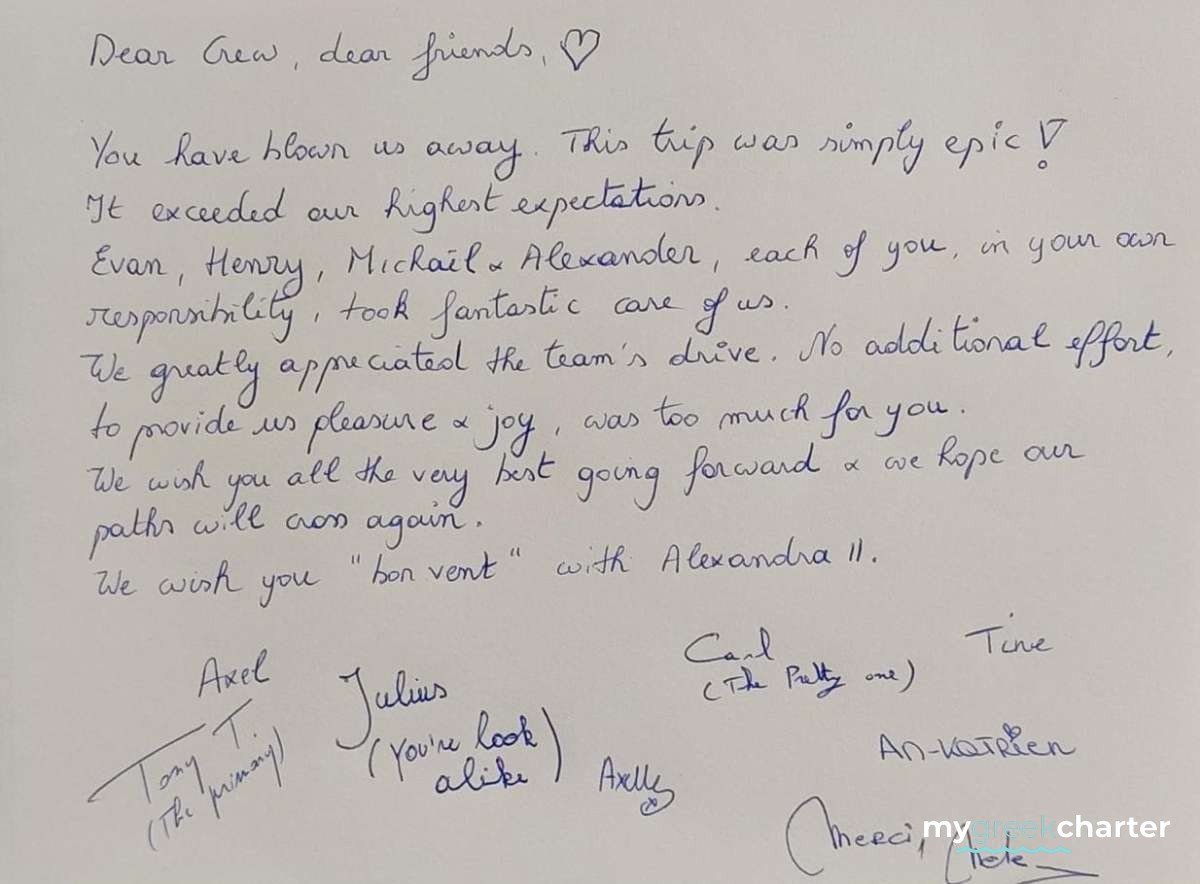 Dear Crew, dear friends, ♡
You have blown us away. This trip was simply epic!
It exceeded our highest expectations.
Evan, Henry, Michaïl & Alexander, each of you, in your own
responsibility, took fantastic care of us.
We greatly appreciated the team's drive. No additional effort,
to provide us pleasure & joy, was too much for you.
We wish you all the very best going forward & we hope our
paths will cross again.
We wish you "bon vent" with Alexandra II.
Axel
Tony T.
(The primary)
Julius
(You're look
alike)
Axelle
Carl
(The Pretty one)
Tine
An-Katrien
Merci,
mygreekcharter